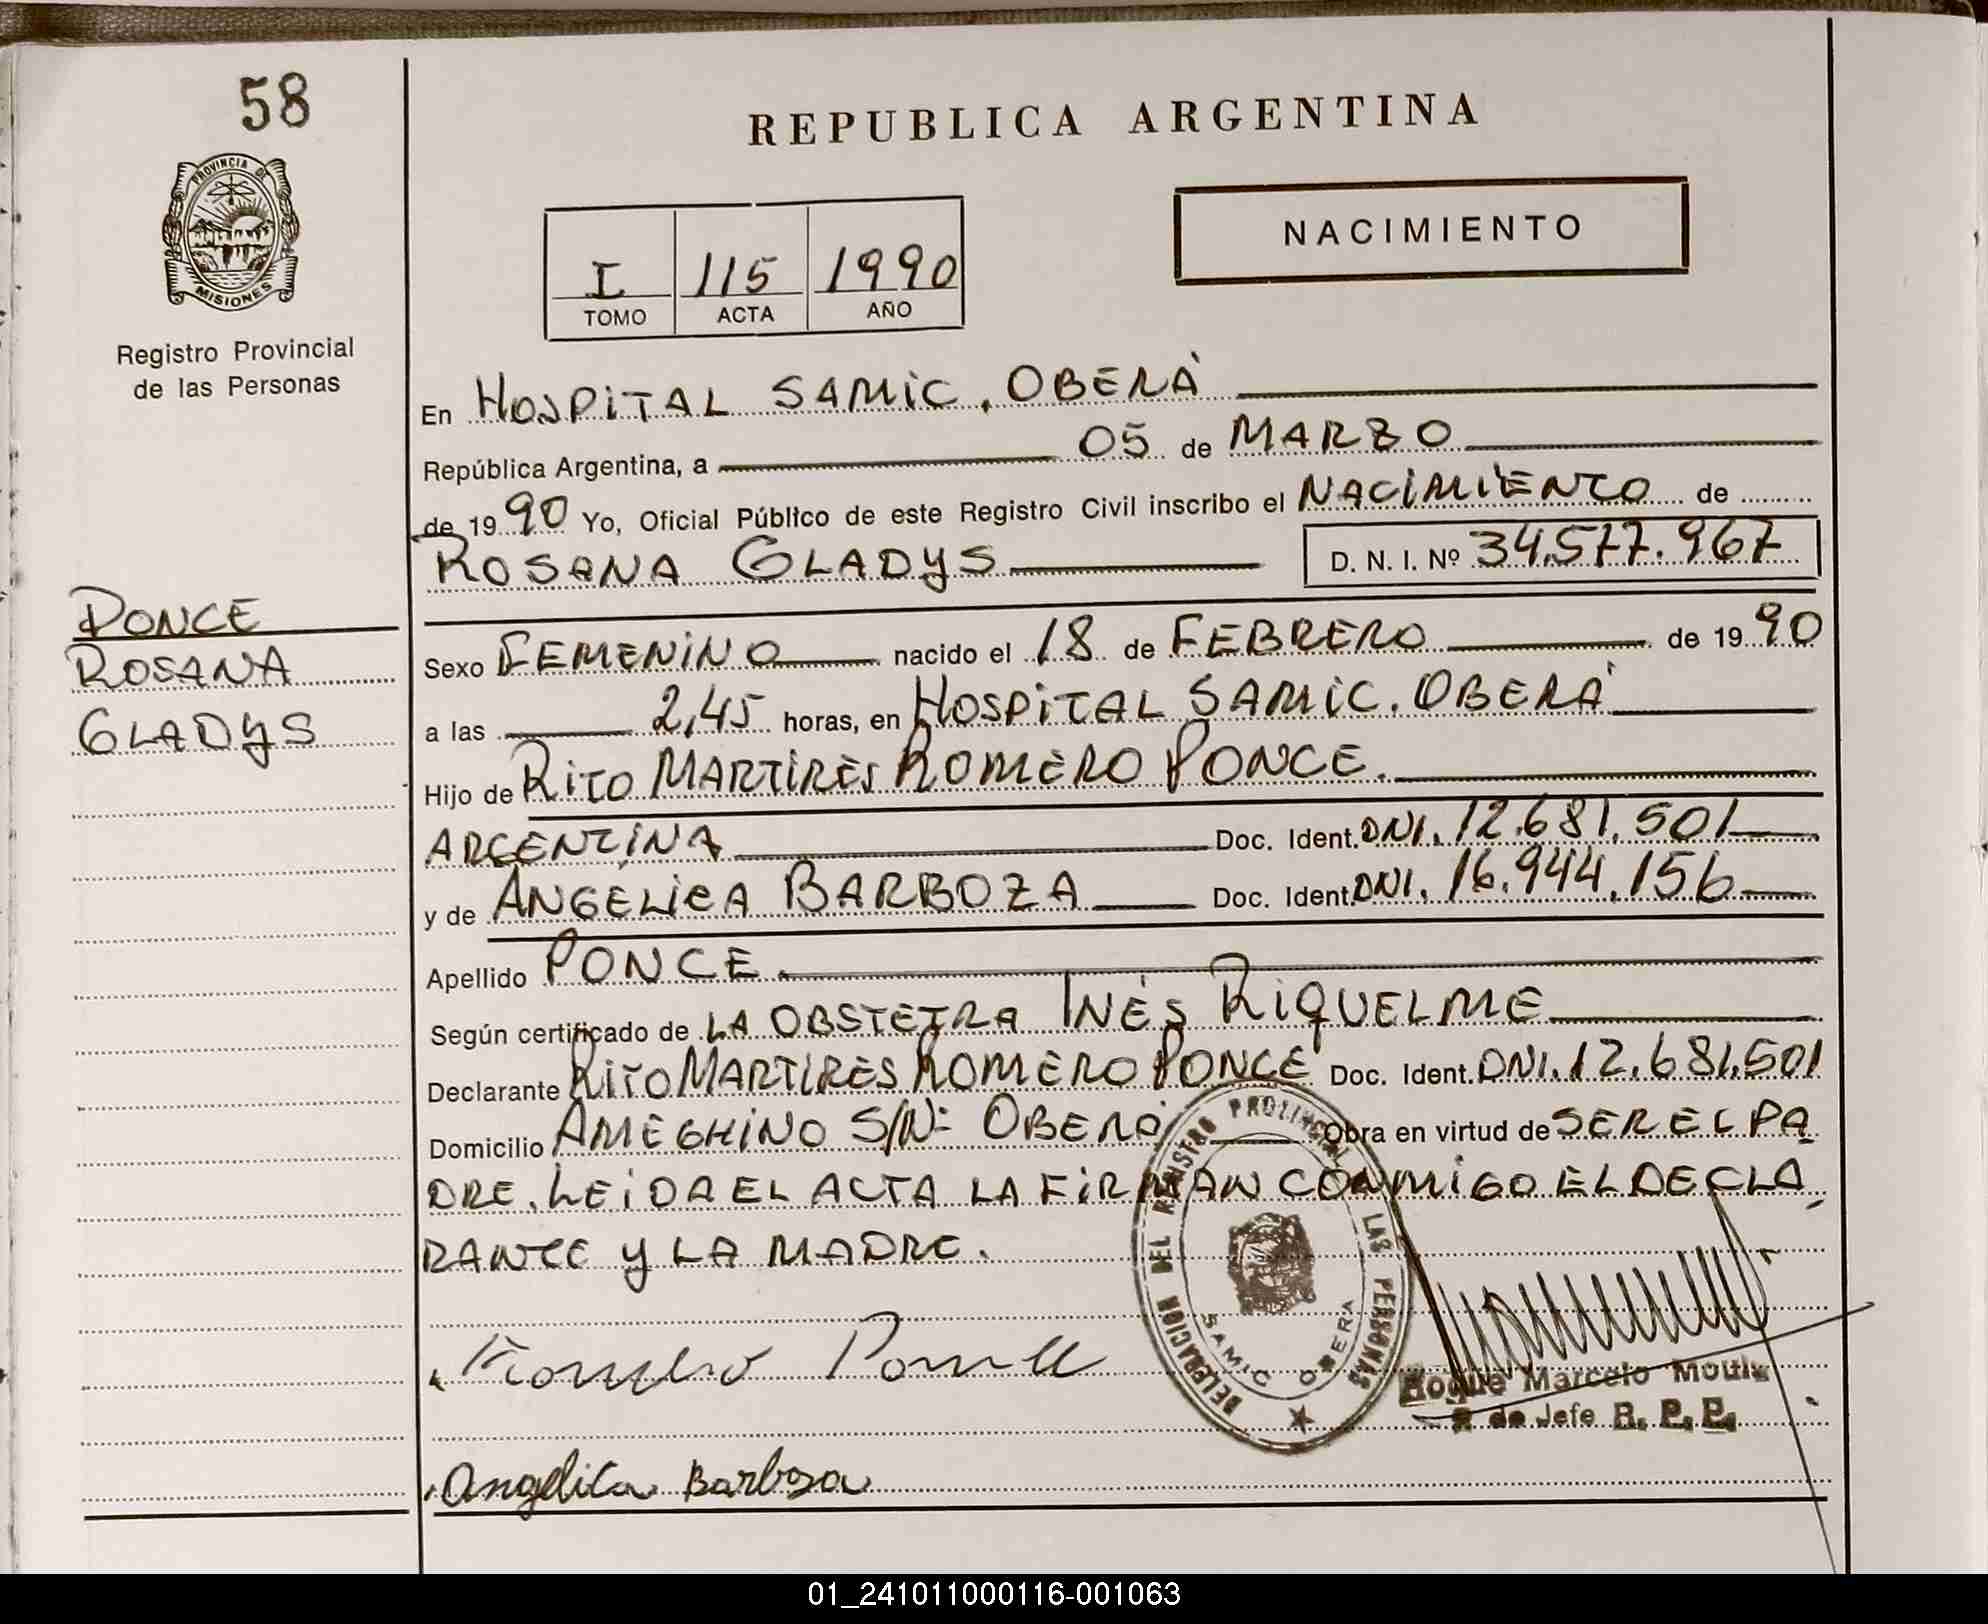 58
REPUBLICA ARGENTINA
PROVINCIA DE
MISIONES
NACIMIENTO
I 115 1990
TOMO ACTA AÑO
Registro Provincial
de las Personas
En HOSPITAL SAMIC. OBERÁ
República Argentina, a 05 de MARZO
de 1990 Yo, Oficial Público de este Registro Civil inscribo el NACIMIENTO de
ROSANA GLADYS D. N. I. Nº 34.577.967
PONCE
ROSANA
GLADYS
Sexo FEMENINO nacido el 18 de FEBRERO de 1990
a las 2,45 horas, en HOSPITAL SAMIC. OBERÁ
Hijo de RITO MARTIRES ROMERO PONCE.
ARGENTINA Doc. Ident. DNI. 12.681.501
y de ANGÉLICA BARBOZA Doc. Ident. DNI. 16.944.156
Apellido PONCE.
Según certificado de LA OBSTETRA INÉS RIQUELME
Declarante RITO MARTIRES ROMERO PONCE Doc. Ident. DNI. 12.681.501
Domicilio AMEGHINO S/Nº OBERÁ Obra en virtud de SER EL PA
DRE. LEIDA EL ACTA LA FIRMAN CONMIGO EL DECLA
RANTE Y LA MADRE.
DELEGRACION DEL REGISTRO PROVINCIAL LAS PERSONAS
SAMIC OBERA
Romero Ponce
Roque Marcelo
de Jefe R. P. P.
Angelica Barboza
01_241011000116-001063